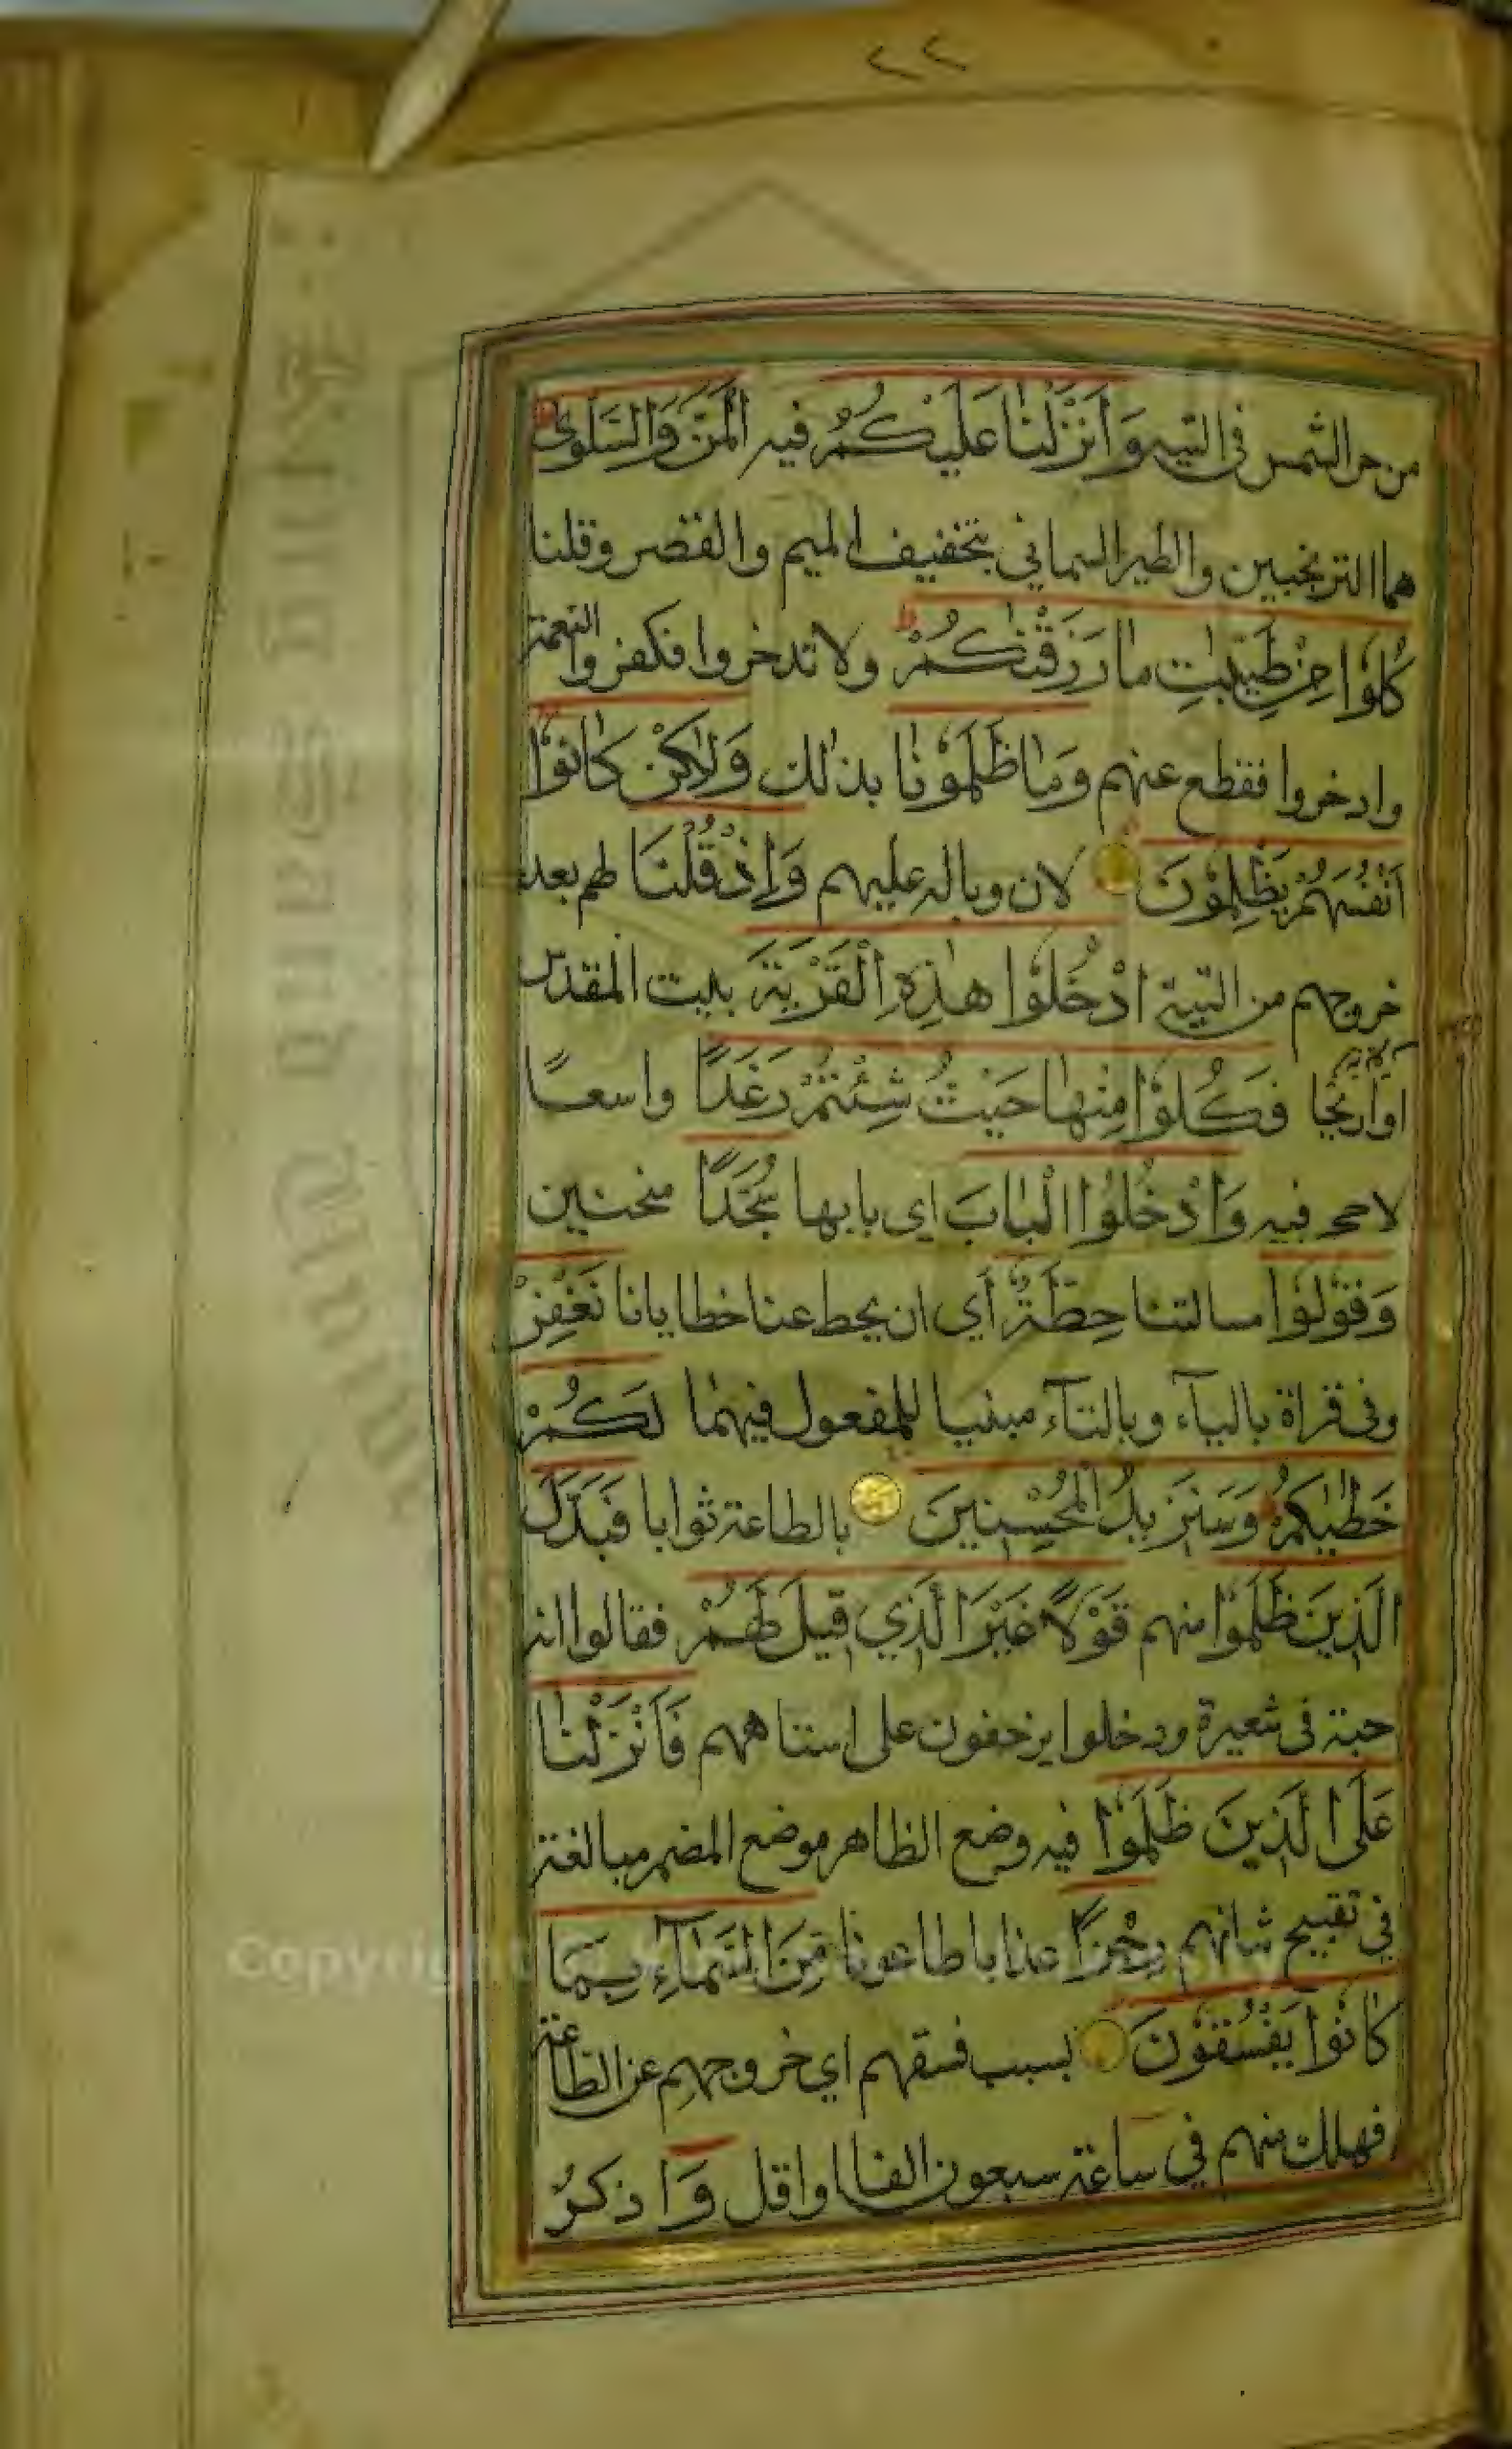 ٢٢
من حر الشمس فى التيه وَ اَنْزَلْنٰا عَلَيْكُمُ فيه الْمَنَّ وَالسَّلْوٰى
هما الترنجبين والطير السمانى بتخفيف الميم والقصر وقلنا
كُلُوْا مِنْ طَيِّبٰاتِ مٰا رَزَقْنٰكُمْ ولا تدخروا فكفروا النعمة
وادخروا فقطع عنهم وَمٰا ظَلَمُوْنٰا بذلك وَلٰكِنْ كٰانُوْا
اَنْفُسَهُمْ يَظْلِمُوْنَ لان وباله عليهم وَاِذْ قُلْنَا لهم بعد
خروجهم من التية ادْخُلُوْا هٰذِهِ الْقَرْيَةَ بيت المقدس
او اريحا فَكُلُوْا مِنْهٰا حَيْثُ شِئْتُمْ رَغَدًا واسعًا
لا حجر فيه وَادْخُلُوْا الْبٰابَ اى بابها سُجَّدًا منحنين
وَقُوْلُوْا مسالتنا حِطَّةٌ أي ان يحط عنا خطايانا نَغْفِرْ
وفى قراة بالياء وبالتاء مبنيا للمفعول فيهما لَكُمْ
خَطٰيٰكُمْ وَسَنَزِيدُ الْمُحْسِنِينَ بالطاعة ثوابا فَبَدَّلَ
الَّذِينَ ظَلَمُوْا منهم قَوْلًا غَيْرَ الَّذِي قِيلَ لَهُمْ فقالوا
حبة فى شعيرة ودخلوا يزحفون على استاههم فَاَنْزَلْنٰا
عَلَى الَّذِينَ ظَلَمُوْا فيه وضع الظاهر موضع المضمر مبالغة
في تقبيح شانهم رِجْزًا عذابا طاعونا مِنَ السَّمٰاءِ بِمَا
كٰانُوْا يَفْسُقُوْنَ بسبب فسقهم اي خروجهم عن الطاعة
فهلك منهم في ساعة سبعون الفا او اقل وَ اذكرْ